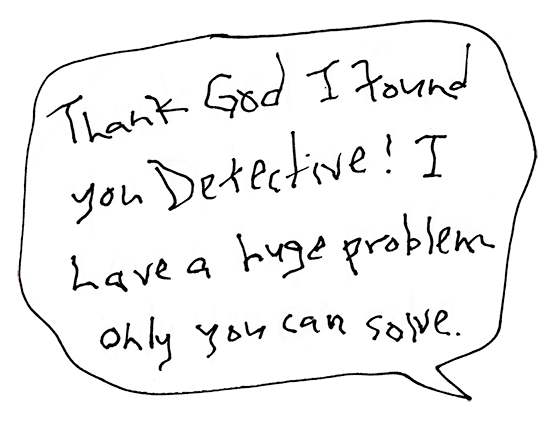 Thank God I found
you Detective! I
have a huge problem
only you can solve.